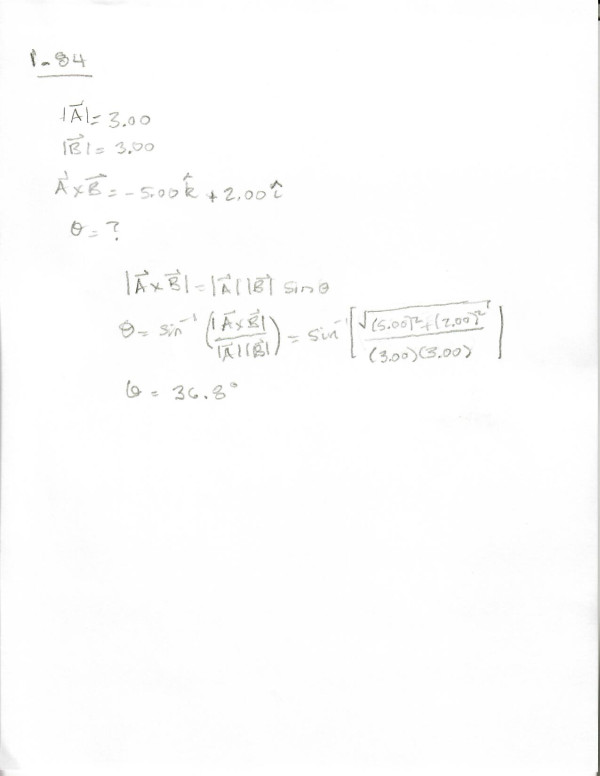 1-84
|A⃗| = 3.00
|B⃗| = 3.00
A⃗ × B⃗ = -5.00 k̂ + 2.00 î
θ = ?
|A⃗ × B⃗| = |A⃗| |B⃗| sin θ
θ = sin⁻¹ (|A⃗ × B⃗| / |A⃗| |B⃗|) = sin⁻¹ [√((5.00)² + (2.00)²) / (3.00)(3.00)]
θ = 36.8°